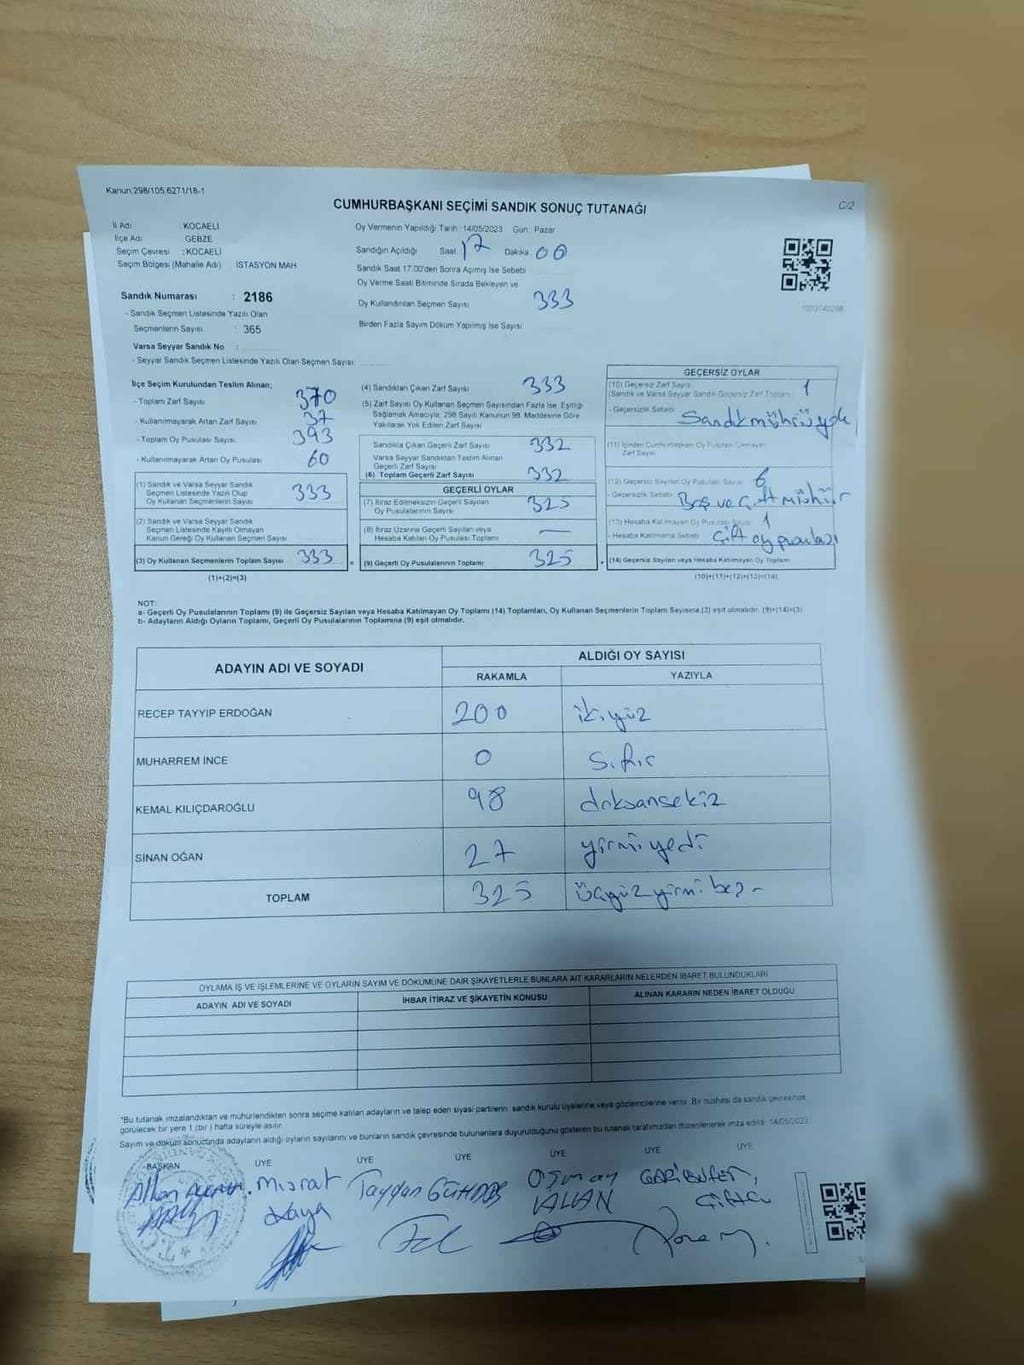 Kanun:298/105,6271/18-1
C/2
CUMHURBAŞKANI SEÇİMİ SANDIK SONUÇ TUTANAĞI
İl Adı KOCAELİ
İlçe Adı GEBZE
Seçim Çevresi : KOCAELİ
Seçim Bölgesi (Mahalle Adı) İSTASYON MAH
Sandık Numarası : 2186
- Sandık Seçmen Listesinde Yazılı Olan
Seçmenlerin Sayısı : 365
Varsa Seyyar Sandık No :
- Seyyar Sandık Seçmen Listesinde Yazılı Olan Seçmen Sayısı
Oy Vermenin Yapıldığı Tarih 14/05/2023 Gün: Pazar
Sandığın Açıldığı Saat 17 Dakika 00
Sandık Saat 17.00'den Sonra Açımış İse Sebebi
Oy Verme Saati Bitiminde Sırada Bekleyen ve
Oy Kullandırılan Seçmen Sayısı 333
Birden Fazla Sayım Döküm Yapılmış İse Sayısı
İlçe Seçim Kurulundan Teslim Alınan;
- Toplam Zarf Sayısı 370
- Kullanılmayarak Artan Zarf Sayısı 37
- Toplam Oy Pusulası Sayısı 393
- Kullanılmayarak Artan Oy Pusulası 60
(1) Sandık ve Varsa Seyyar Sandık
Seçmen Listesinde Yazılı Olup
Oy Kullanan Seçmenlerin Sayısı 333
(2) Sandık ve Varsa Seyyar Sandık
Seçmen Listesinde Kayıtlı Olmayan
Kanun Gereği Oy Kullanan Seçmen Sayısı
(3) Oy Kullanan Seçmenlerin Toplam Sayısı 333
(1)+(2)=(3)
(4) Sandıktan Çıkan Zarf Sayısı 333
(5) Zarf Sayısı Oy Kullanan Seçmen Sayısından Fazla İse, Eşitliği
Sağlamak Amacıyla, 298 Sayılı Kanunun 98. Maddesine Göre
Yakılacak Yok Edilen Zarf Sayısı
Sandıkta Çıkan Geçerli Zarf Sayısı 332
Varsa Seyyar Sandıktan Teslim Alınan
Geçerli Zarf Sayısı
(6) Toplam Geçerli Zarf Sayısı 332
GEÇERLİ OYLAR
(7) İtiraz Edilmeksizin Geçerli Sayılan
Oy Pusulalarının Sayısı 325
(8) İtiraz Üzerine Geçerli Sayılan veya
Hesaba Katılan Oy Pusulaları Toplamı —
(9) Geçerli Oy Pusulalarının Toplamı 325
GEÇERSİZ OYLAR
(10) Geçersiz Zarf Sayısı 1
(Sandık ve Varsa Seyyar Sandık Geçersiz Zarf Toplamı
- Geçersizlik Sebebi Sandık mührü yok
Zarf Sayısı
(12) Geçersiz Sayılan Oy Pusulası Sayısı 6
- Geçersizlik Sebebi Boş ve Çift Mühür
(13) Hesaba Katılmayan Oy Pusula Sayısı 1
- Hesaba Katılmama Sebebi Çift oy pusulası
(14) Geçersiz Sayılan veya Hesaba Katılmayan Oy Toplamı
(10)+(11)+(12)+(13)=(14)
NOT:
a- Geçerli Oy Pusulalarının Toplamı (9) ile Geçersiz Sayılan veya Hesaba Katılmayan Oy Toplamı (14) Toplamları, Oy Kullanan Seçmenlerin Toplam Sayısına (3) eşit olmalıdır. (9)+(14)=(3)
b- Adayların Aldığı Oyların Toplamı, Geçerli Oy Pusulalarının Toplamına (9) eşit olmalıdır.
ADAYIN ADI VE SOYADI ALDIĞI OY SAYISI
RAKAMLA YAZIYLA
RECEP TAYYİP ERDOĞAN 200 ikiyüz
MUHARREM İNCE 0 sıfır
KEMAL KILIÇDAROĞLU 98 doksansekiz
SİNAN OĞAN 27 yirmiyedi
TOPLAM 325 üçyüz yirmi beş -
OYLAMA İŞ VE İŞLEMLERİNE VE OYLARIN SAYIM VE DÖKÜMÜNE DAİR ŞİKAYETLERLE BUNLARA AİT KARARLARIN NELERDEN İBARET BULUNDUKLARI
ADAYIN ADI VE SOYADI İHBAR İTİRAZ VE ŞİKAYETİN KONUSU ALINAN KARARIN NEDEN İBARET OLDUĞU
*Bu tutanak imzalandıktan ve mühürlendikten sonra seçime katılan adayların ve talep eden siyasi partilerin sandık kurulu üyelerine veya gözlemcilerine verilir. Bir nüshası da sandık çevresinde
görülecek bir yere 1 (bir) hafta süreyle asılır.
Sayım ve döküm sonucunda adayların aldığı oyların sayılarını ve bunların sandık çevresinde bulunanlara duyurulduğunu gösteren bu tutanak tarafımızdan düzenlenerek imza edildi. 14/05/2023
BAŞKAN ÜYE ÜYE ÜYE ÜYE ÜYE ÜYE
Taydan
Kaya